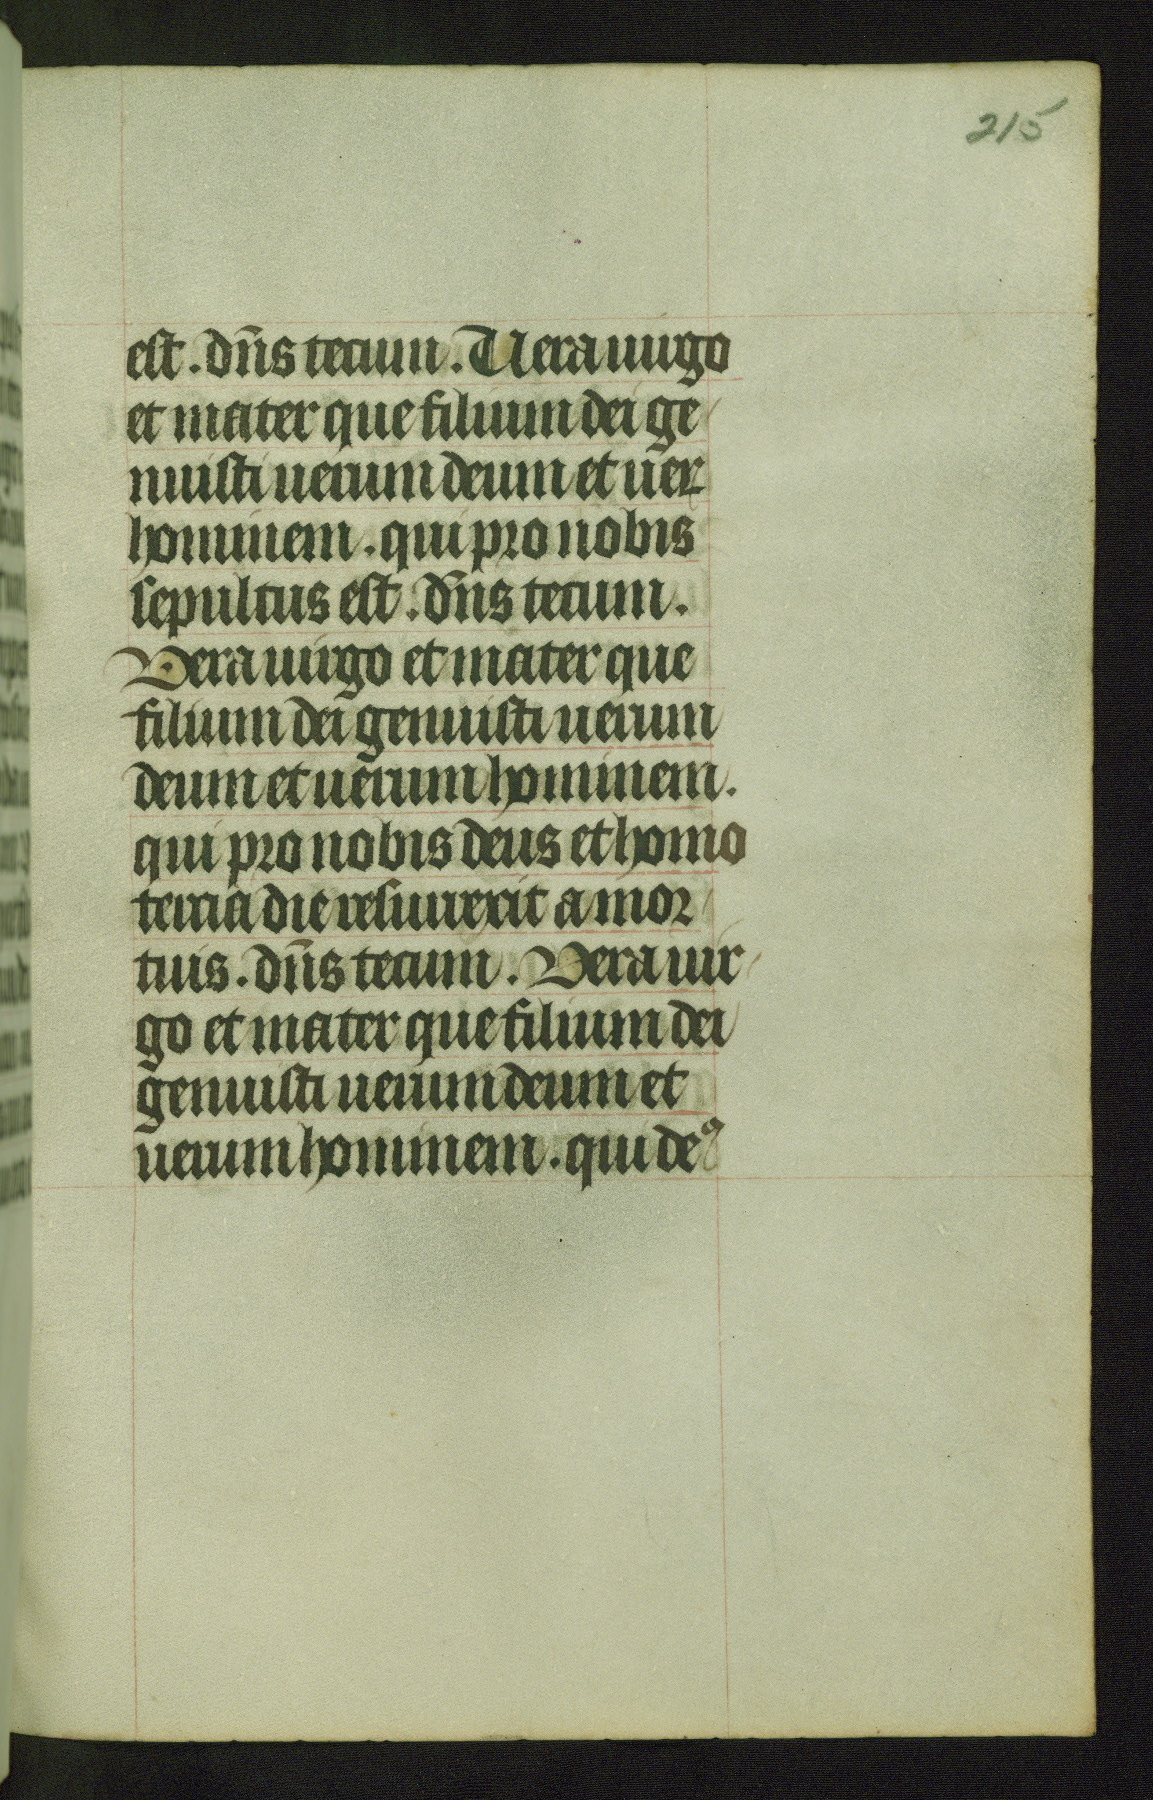 215
est. dn̄s tecum. Uera uirgo
et mater que filium dei ge
nuisti uerum deum et uer
hominem. qui pro nobis
sepultus est. dn̄s tecum.
Vera uirgo et mater que
filium dei genuisti uerum
deum et uerum hominem.
qui pro nobis deus et homo
tercia die resurrexit a mor
tuis. dn̄s tecum. Vera uir
go et mater que filium dei
genuisti uerum deum et
uerum hominem. qui deꝰ